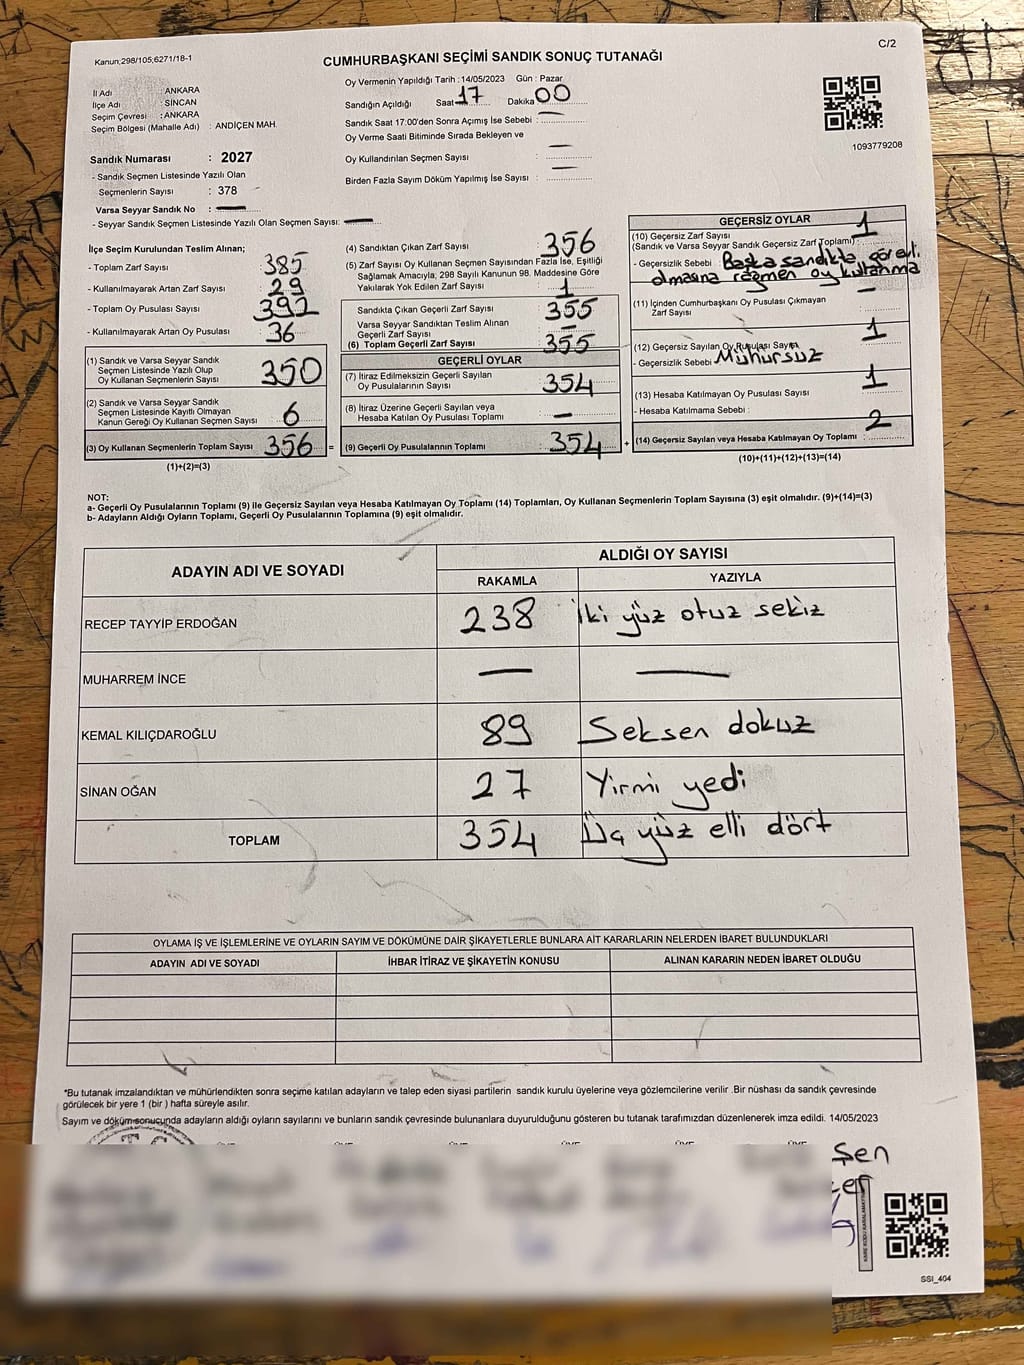 C/2
Kanun;298/105;6271/18-1
CUMHURBAŞKANI SEÇİMİ SANDIK SONUÇ TUTANAĞI
İl Adı : ANKARA
İlçe Adı : SİNCAN
Seçim Çevresi : ANKARA
Seçim Bölgesi (Mahalle Adı) : ANDİÇEN MAH.
Sandık Numarası : 2027
- Sandık Seçmen Listesinde Yazılı Olan
Seçmenlerin Sayısı : 378
Varsa Seyyar Sandık No :
- Seyyar Sandık Seçmen Listesinde Yazılı Olan Seçmen Sayısı:
Oy Vermenin Yapıldığı Tarih : 14/05/2023 Gün : Pazar
Sandığın Açıldığı Saat 17 Dakika 00
Sandık Saat 17:00'den Sonra Açımış İse Sebebi :
Oy Verme Saati Bitiminde Sırada Bekleyen ve
Oy Kullandırılan Seçmen Sayısı :
Birden Fazla Sayım Döküm Yapılmış İse Sayısı :
1093779208
İlçe Seçim Kurulundan Teslim Alınan;
- Toplam Zarf Sayısı 385
- Kullanılmayarak Artan Zarf Sayısı 29
- Toplam Oy Pusulası Sayısı 392
- Kullanılmayarak Artan Oy Pusulası 36
(1) Sandık ve Varsa Seyyar Sandık
Seçmen Listesinde Yazılı Olup
Oy Kullanan Seçmenlerin Sayısı 350
(2) Sandık ve Varsa Seyyar Sandık
Seçmen Listesinde Kayıtlı Olmayan
Kanun Gereği Oy Kullanan Seçmen Sayısı 6
(3) Oy Kullanan Seçmenlerin Toplam Sayısı 356 =
(1)+(2)=(3)
(4) Sandıktan Çıkan Zarf Sayısı 356
(5) Zarf Sayısı Oy Kullanan Seçmen Sayısından Fazla İse, Eşitliği
Sağlamak Amacıyla, 298 Sayılı Kanunun 98. Maddesine Göre
Yakılarak Yok Edilen Zarf Sayısı 1
Sandıkta Çıkan Geçerli Zarf Sayısı 355
Varsa Seyyar Sandıktan Teslim Alınan
Geçerli Zarf Sayısı
(6) Toplam Geçerli Zarf Sayısı 355
GEÇERLİ OYLAR
(7) İtiraz Edilmeksizin Geçerli Sayılan
Oy Pusulalarının Sayısı 354
(8) İtiraz Üzerine Geçerli Sayılan veya
Hesaba Katılan Oy Pusulası Toplamı
(9) Geçerli Oy Pusulalarının Toplamı 354 +
GEÇERSİZ OYLAR
(10) Geçersiz Zarf Sayısı 1
(Sandık ve Varsa Seyyar Sandık Geçersiz Zarf Toplamı) :
- Geçersizlik Sebebi Başka sandıkta görevli
olmasına rağmen oy kullanma
(11) İçinden Cumhurbaşkanı Oy Pusulası Çıkmayan
Zarf Sayısı
(12) Geçersiz Sayılan Oy Pusulası Sayısı 1
- Geçersizlik Sebebi Mühürsüz
(13) Hesaba Katılmayan Oy Pusulası Sayısı 1
- Hesaba Katılmama Sebebi :
(14) Geçersiz Sayılan veya Hesaba Katılmayan Oy Toplamı : 2
(10)+(11)+(12)+(13)=(14)
NOT:
a- Geçerli Oy Pusulalarının Toplamı (9) ile Geçersiz Sayılan veya Hesaba Katılmayan Oy Toplamı (14) Toplamları, Oy Kullanan Seçmenlerin Toplam Sayısına (3) eşit olmalıdır. (9)+(14)=(3)
b- Adayların Aldığı Oyların Toplamı, Geçerli Oy Pusulalarının Toplamına (9) eşit olmalıdır.
ADAYIN ADI VE SOYADI ALDIĞI OY SAYISI
RAKAMLA YAZIYLA
RECEP TAYYİP ERDOĞAN 238 iki yüz otuz sekiz
MUHARREM İNCE
KEMAL KILIÇDAROĞLU 89 Seksen dokuz
SİNAN OĞAN 27 Yirmi yedi
TOPLAM 354 Üç yüz elli dört
OYLAMA İŞ VE İŞLEMLERİNE VE OYLARIN SAYIM VE DÖKÜMÜNE DAİR ŞİKAYETLERLE BUNLARA AİT KARARLARIN NELERDEN İBARET BULUNDUKLARI
ADAYIN ADI VE SOYADI İHBAR İTİRAZ VE ŞİKAYETİN KONUSU ALINAN KARARIN NEDEN İBARET OLDUĞU
*Bu tutanak imzalandıktan ve mühürlendikten sonra seçime katılan adayların ve talep eden siyasi partilerin sandık kurulu üyelerine veya gözlemcilerine verilir .Bir nüshası da sandık çevresinde
görülecek bir yere 1 (bir ) hafta süreyle asılır.
Sayım ve döküm sonucunda adayların aldığı oyların sayılarını ve bunların sandık çevresinde bulunanlara duyurulduğunu gösteren bu tutanak tarafımızdan düzenlenerek imza edildi. 14/05/2023
Şen
SSI_404